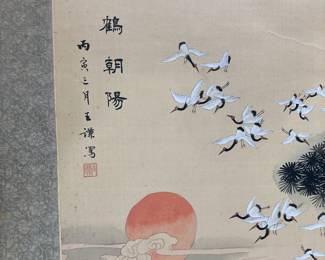 鶴朝陽
丙寅三月王謙寫